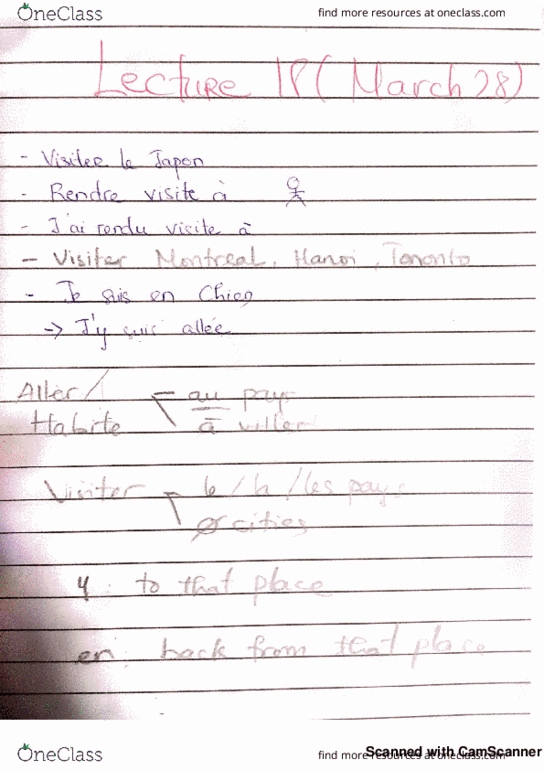 OneClass find more resources at oneclass.com
Lecture 18 (March 28)
- Visiter le Japon
- Rendre visite à
- J'ai rendu visite à
- Visiter Montreal, Hanoi, Toronto
- Je suis en Chien
→ J'y suis allée
Aller / au pays
Habite à viller
Visiter le / la / les pays
ø cities
y : to that place
en : back from that place
OneClass find more resources at oneclass.com
Scanned with CamScanner